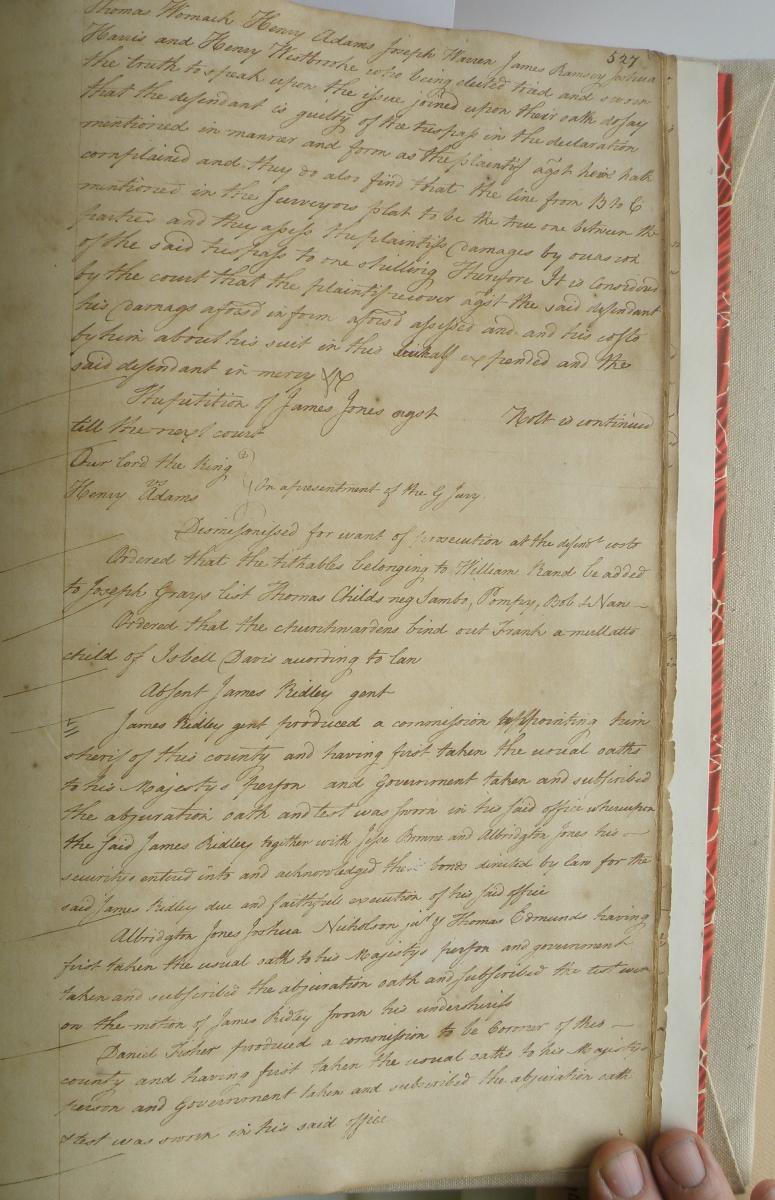 527
Thomas Womack Henry Adams Joseph Warren James Ramsey Joshua
Harris and Henry Westbrooke who being elected tried and sworn
the truth to speak upon the issue joined upon their oath do say
that the defendant is guilty of the trespass in the declaration
mentioned in manner and form as the plaintif agst him hath
complained and they do also find that the line from B to C
mentioned in the Surveyors plat to be the true one between the
parties and they assess the plaintifs Damages by ocasion
of the said trespass to one shilling Therefore It is Considered
by the court that the plaintif recover agst the said defendant
his Damags aforsd in form aforsd assessed and and his costs
by him about his suit in this behalf expended and the
said defendant in mercy &c
The petition of James Jones agst Holt is continued
till the next court
Our lord the King
vs
Henry Adams On a presentment of the G Jury
Dismissed for want of prosecution at the defendt costs
Ordered that the tithables belonging to William Rand be added
to Joseph Grays list Thomas Childs neg Sambo, Pompey, Bob & Nan
Ordered that the churchwardens bind out Frank a mullatto
child of Isbell Davis acording to law
Absent James Ridley gent
James Ridley gent produced a commission appointing him
sherif of this county and having first taken the usual oaths
to his Majestys person and Government taken and subscribed
the abjuration oath and test was sworn in his said office whereupon
the said James Ridley together with Jesse Browne and Albridgton Jones his
securities entered into and acknowledged their bonds directed by law for the
said James Ridley due and faithfull execution of his said office
Albridgton Jones Joshua Nicholson & Thomas Edmunds having
first taken the usual oath to his Majestys person and government
taken and subscribed the abjuration oath and subscribed the test was
on the motion of James Ridley sworn his undersherifs
Daniel Fisher produced a commission to be Coroner of this
county and having first taken the usual oaths to his Majestys
person and Government taken and subscribed the abjuration oath
& test was sworn in his said office